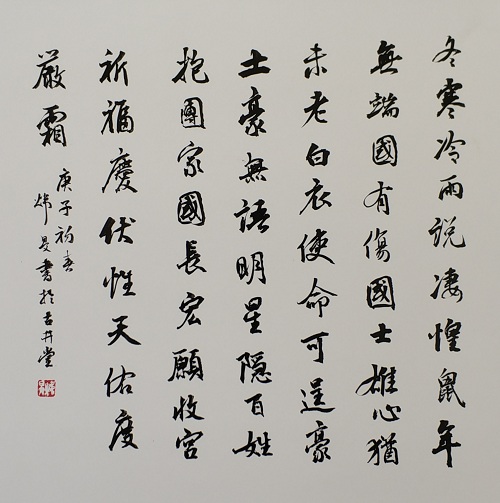 冬寒冷雨説凄惶鼠年
無端國有傷國士雄心猶
未老白衣使命可逞豪
土豪無語明星隱百姓
抱團家國長宏願收官
祈福慶伏惟天佑度
嚴霜
庚子初春
煒旻書於古井堂